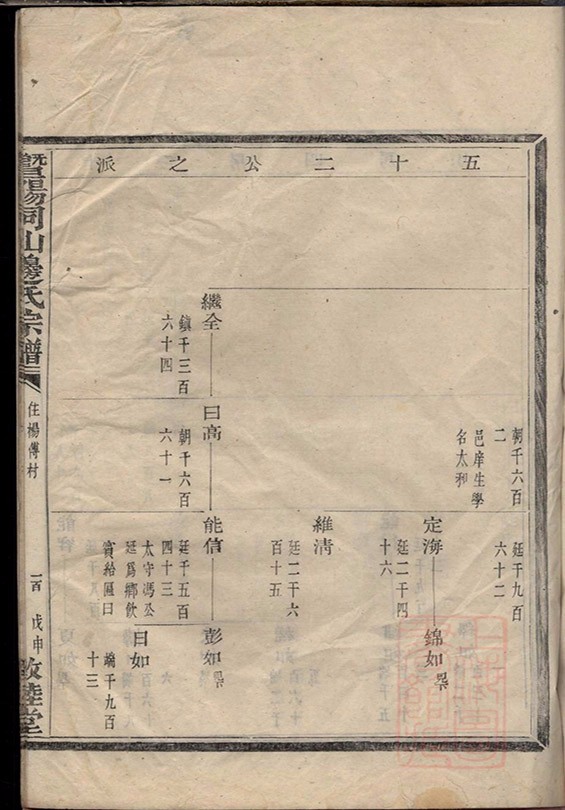 五十二公之派
朝千六百
二
邑庠生學
名太和
廷千九百
六十二
定海
廷二千四
十六
錦如
維淸
廷二千六
百十五
繼全
鎮千三百
六十四
曰高
朝千六百
六十一
能信
廷千五百
四十三
太守馮公
廷爲鄉飲
賓給匾曰
彭如
日如
端千九百
十三
暨陽同山邊氏宗譜
住楊傅村
一百
戊申
敦睦堂